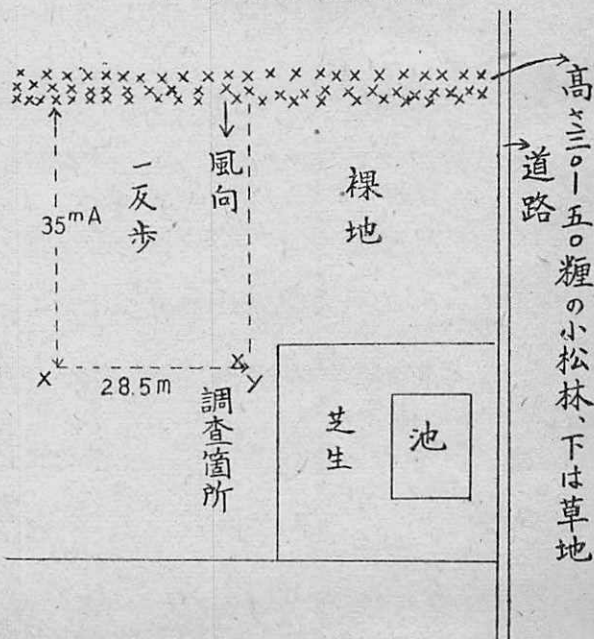 高さ三〇ー五〇糎の小松林、下は草地
道路
風向
一反歩
裸地
35mA
28.5m
X
Y
調査箇所
芝生
池